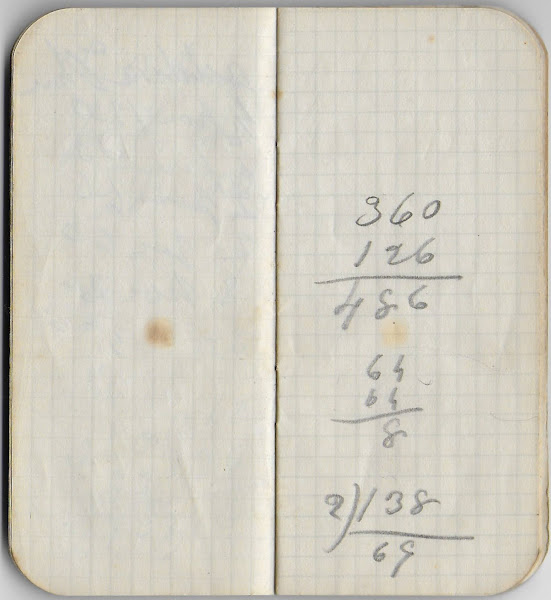 360
126
486
64
64
8
2)138
69